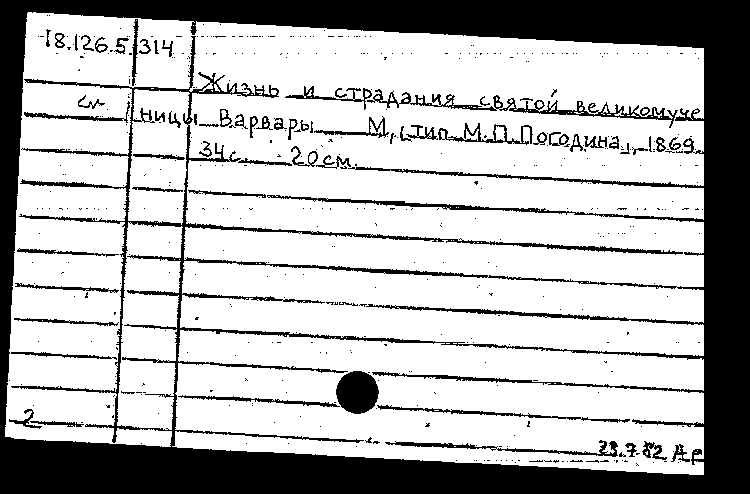 18.126.5.314
Жизнь и страдания святой великомуче
ницы Варвары М., тип М.П.Погодина, 1869.
34с. 20см.
2